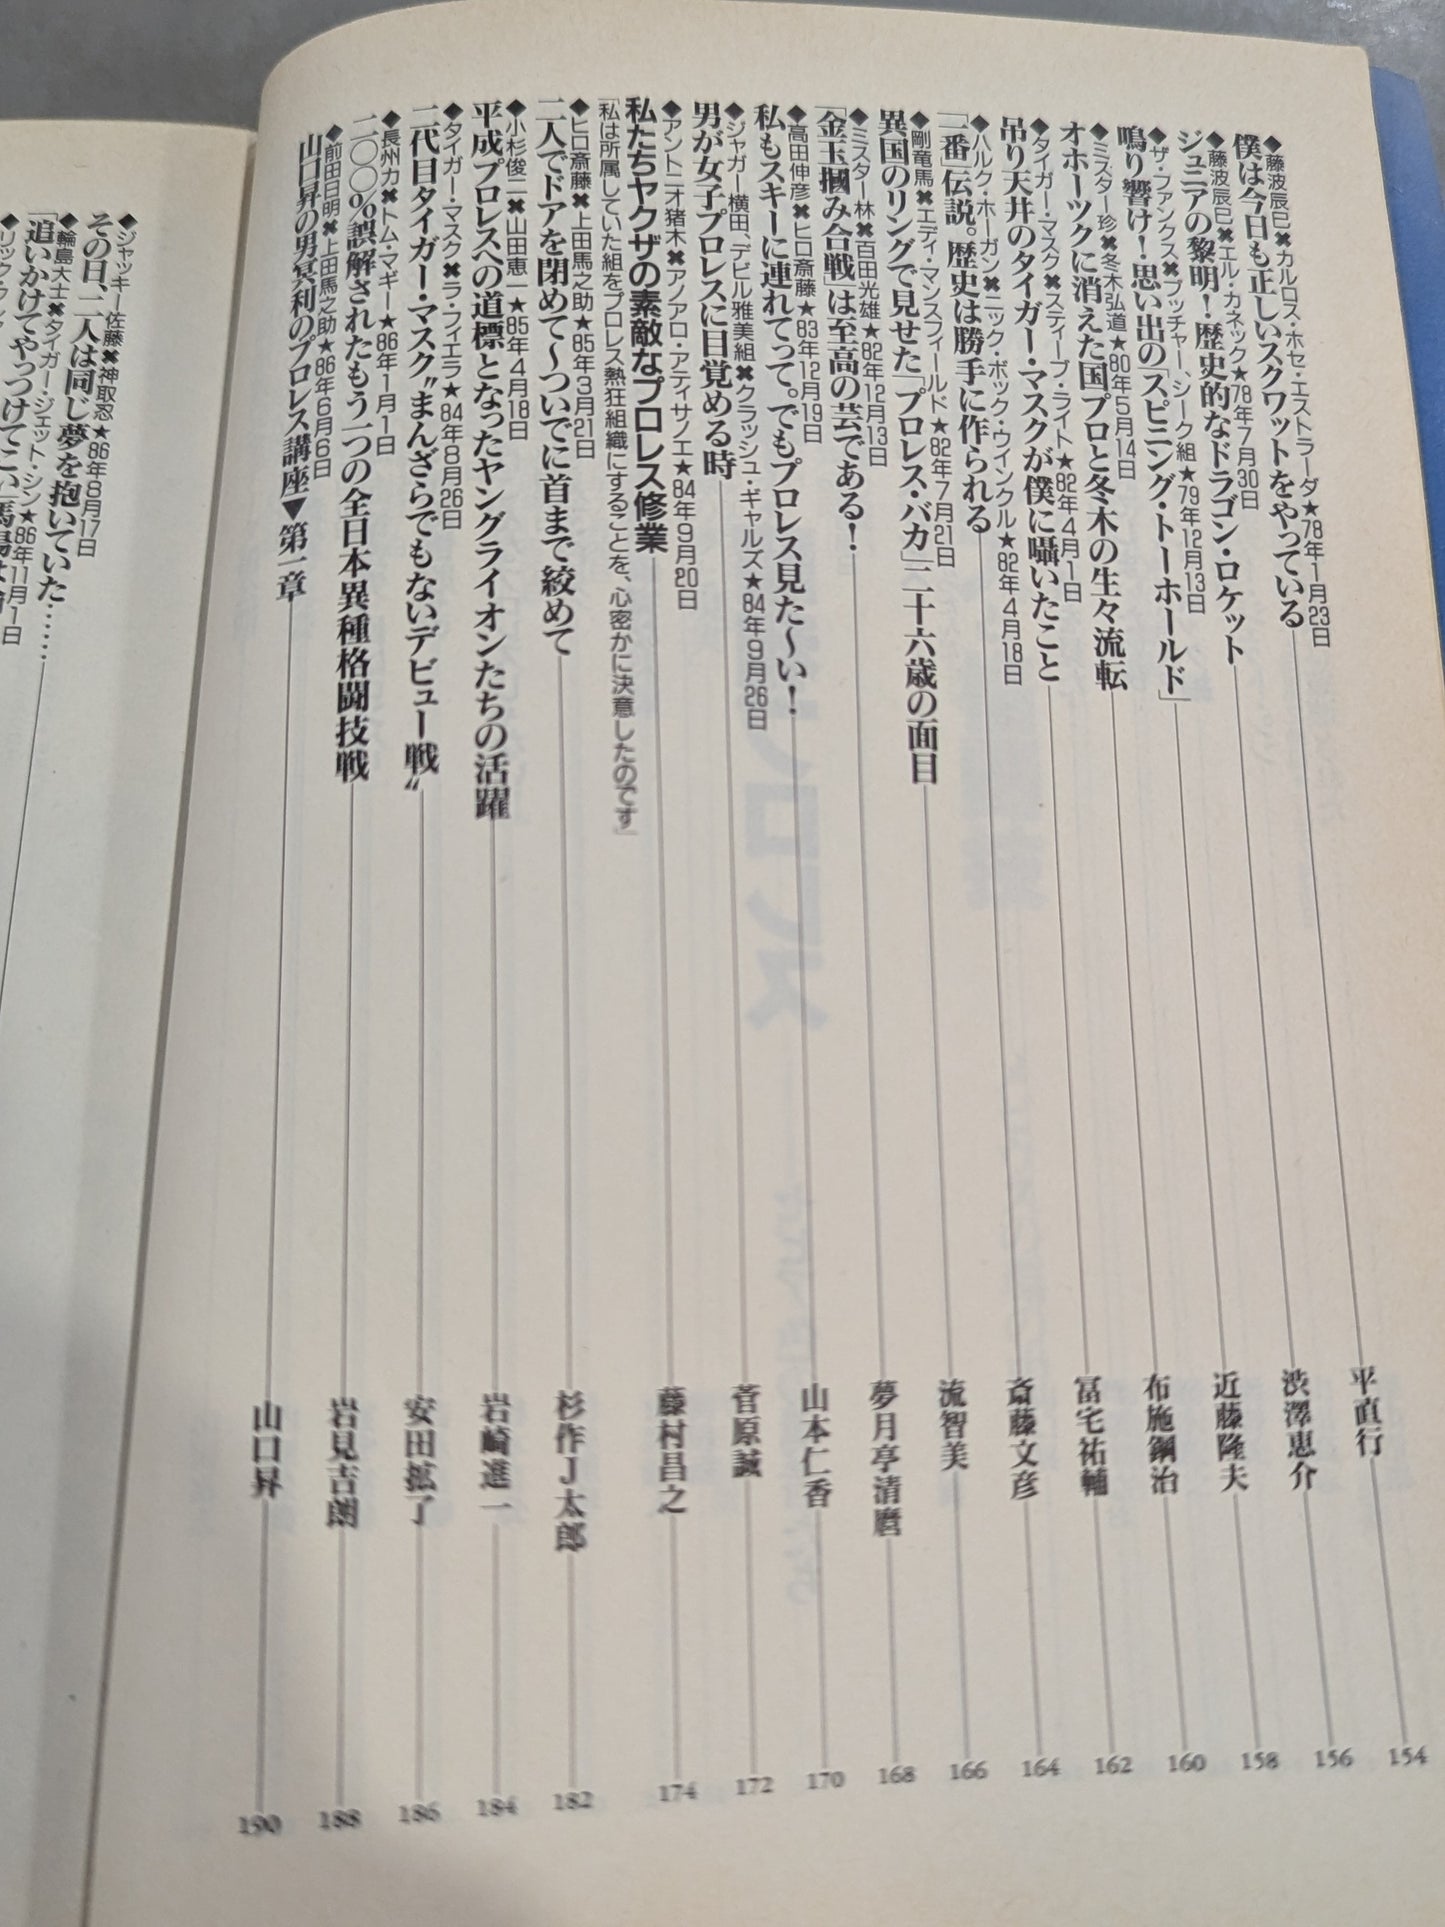 ◆藤波辰巳✖カルロス・ホセ・エストラーダ★78年1月23日
僕は今日も正しいスクワットをやっている 平直行 154
◆藤波辰巳✖エル・カネック★78年7月30日
ジュニアの黎明！歴史的なドラゴン・ロケット 渋澤恵介 156
◆ザ・ファンクス✖ブッチャー、シーク組★79年12月13日
鳴り響け！思い出の「スピニング・トーホールド」 近藤隆夫 158
◆ミスター珍✖冬木弘道★80年5月14日
オホーツクに消えた国プロと冬木の生々流転 布施鋼治 160
◆タイガー・マスク✖スティーブ・ライト★82年4月1日
吊り天井のタイガー・マスクが僕に囁いたこと 冨宅祐輔 162
◆ハルク・ホーガン✖ニック・ボックウインクル★82年4月18日
「一番」伝説。歴史は勝手に作られる 斎藤文彦 164
◆剛竜馬✖エディ・マンスフィールド★82年7月21日
異国のリングで見せた「プロレス・バカ」二十六歳の面目 流智美 166
◆ミスター林✖百田光雄★82年12月13日
「金玉摑み合戦」は至高の芸である！ 夢月亭清麿 168
◆高田伸彦✖ヒロ斎藤★83年12月19日
私もスキーに連れてって。でもプロレス見た〜い！ 山本仁香 170
◆ジャガー横田、デビル雅美組✖クラッシュ・ギャルズ★84年9月26日
男が女子プロレスに目覚める時 菅原誠 172
◆アントニオ猪木✖アノアロ・アティサノエ★84年9月20日
私たちヤクザの素敵なプロレス修業 藤村昌之 174
「私は所属していた組をプロレス熱狂組織にすることを、心密かに決意したのです」
◆ヒロ斎藤✖上田馬之助★85年3月21日
二人でドアを閉めて〜ついでに首まで絞めて 杉作J太郎 182
◆小杉俊二✖山田恵一★85年4月18日
平成プロレスへの道標となったヤングライオンたちの活躍 岩崎進一 184
◆タイガー・マスク✖ラ・フィエラ★84年8月26日
二代目タイガー・マスク〝まんざらでもないデビュー戦〟 安田拡了 186
◆長州力✖トム・マギー★86年1月1日
二〇〇％誤解されたもう一つの全日本異種格闘技戦 岩見吉朗 188
◆前田日明✖上田馬之助★86年6月6日
山口昇の男冥利のプロレス講座▼第一章 山口昇 190
◆ジャッキー佐藤✖神取忍★86年8月17日
その日、二人は同じ夢を抱いていた……
◆輪島大士✖タイガー・ジェット・シン★86年11月1日
「追いかけてやっつけてこい」馬場は
◆リック・